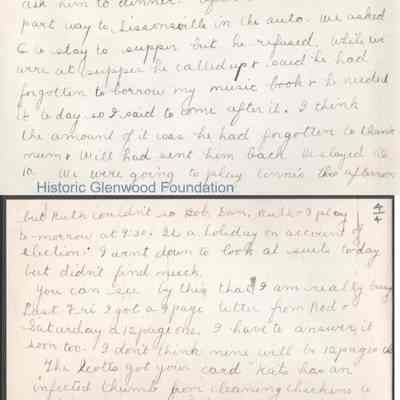 ask him to dinner.
part way to Lissonsville in the auto. We asked
C to stay to supper but he refused. While we
were at supper he called up & said he had
forgotten to borrow my music book & he needed
it today so I said to come after it. I think
the amount of it was he had forgotten to thank
mum & Will had sent him back. He stayed till
10. We were going to play tennis this afternoon
Historic Glenwood Foundation
but Ruth couldn't so Bob, Dan, Ruth & I play
to-morrow at 9:30. It's a holiday on account of
election. I went down to look at suits today
but didn't find much.
4/4
You can see by this that I am really busy
Last Fri I got a 9 page letter from Red &
Saturday a 12 page one. I have to answer it
soon too. I don't think mine will be 12 pages
The Scotts got your card. Kate has an
infected thumb from cleaning chickens &